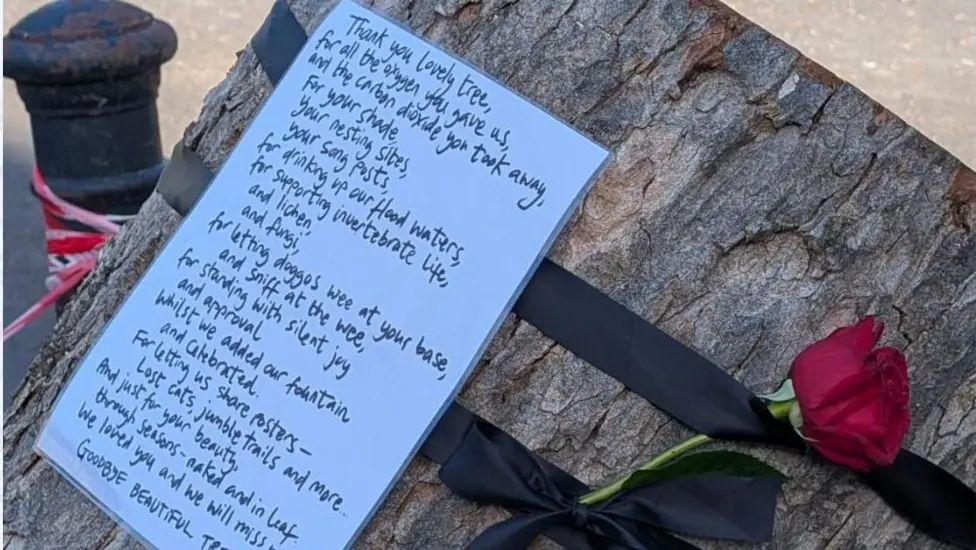 Thank you lovely tree,
for all the oxygen you gave us,
and the carbon dioxide you took away,
For your shade,
your nesting sites,
your song posts,
for drinking up our flood waters,
for supporting invertebrate life,
and lichen,
and fungi,
for letting doggos wee at your base,
and sniff at the wee,
for standing with silent joy
and approval
Whilst we added our fountain
and celebrated.
For letting us share posters-
Lost cats, jumble trails and more..
And just for your beauty,
through seasons - naked and in leaf.
We loved you and we will miss
GOODBYE BEAUTIFUL